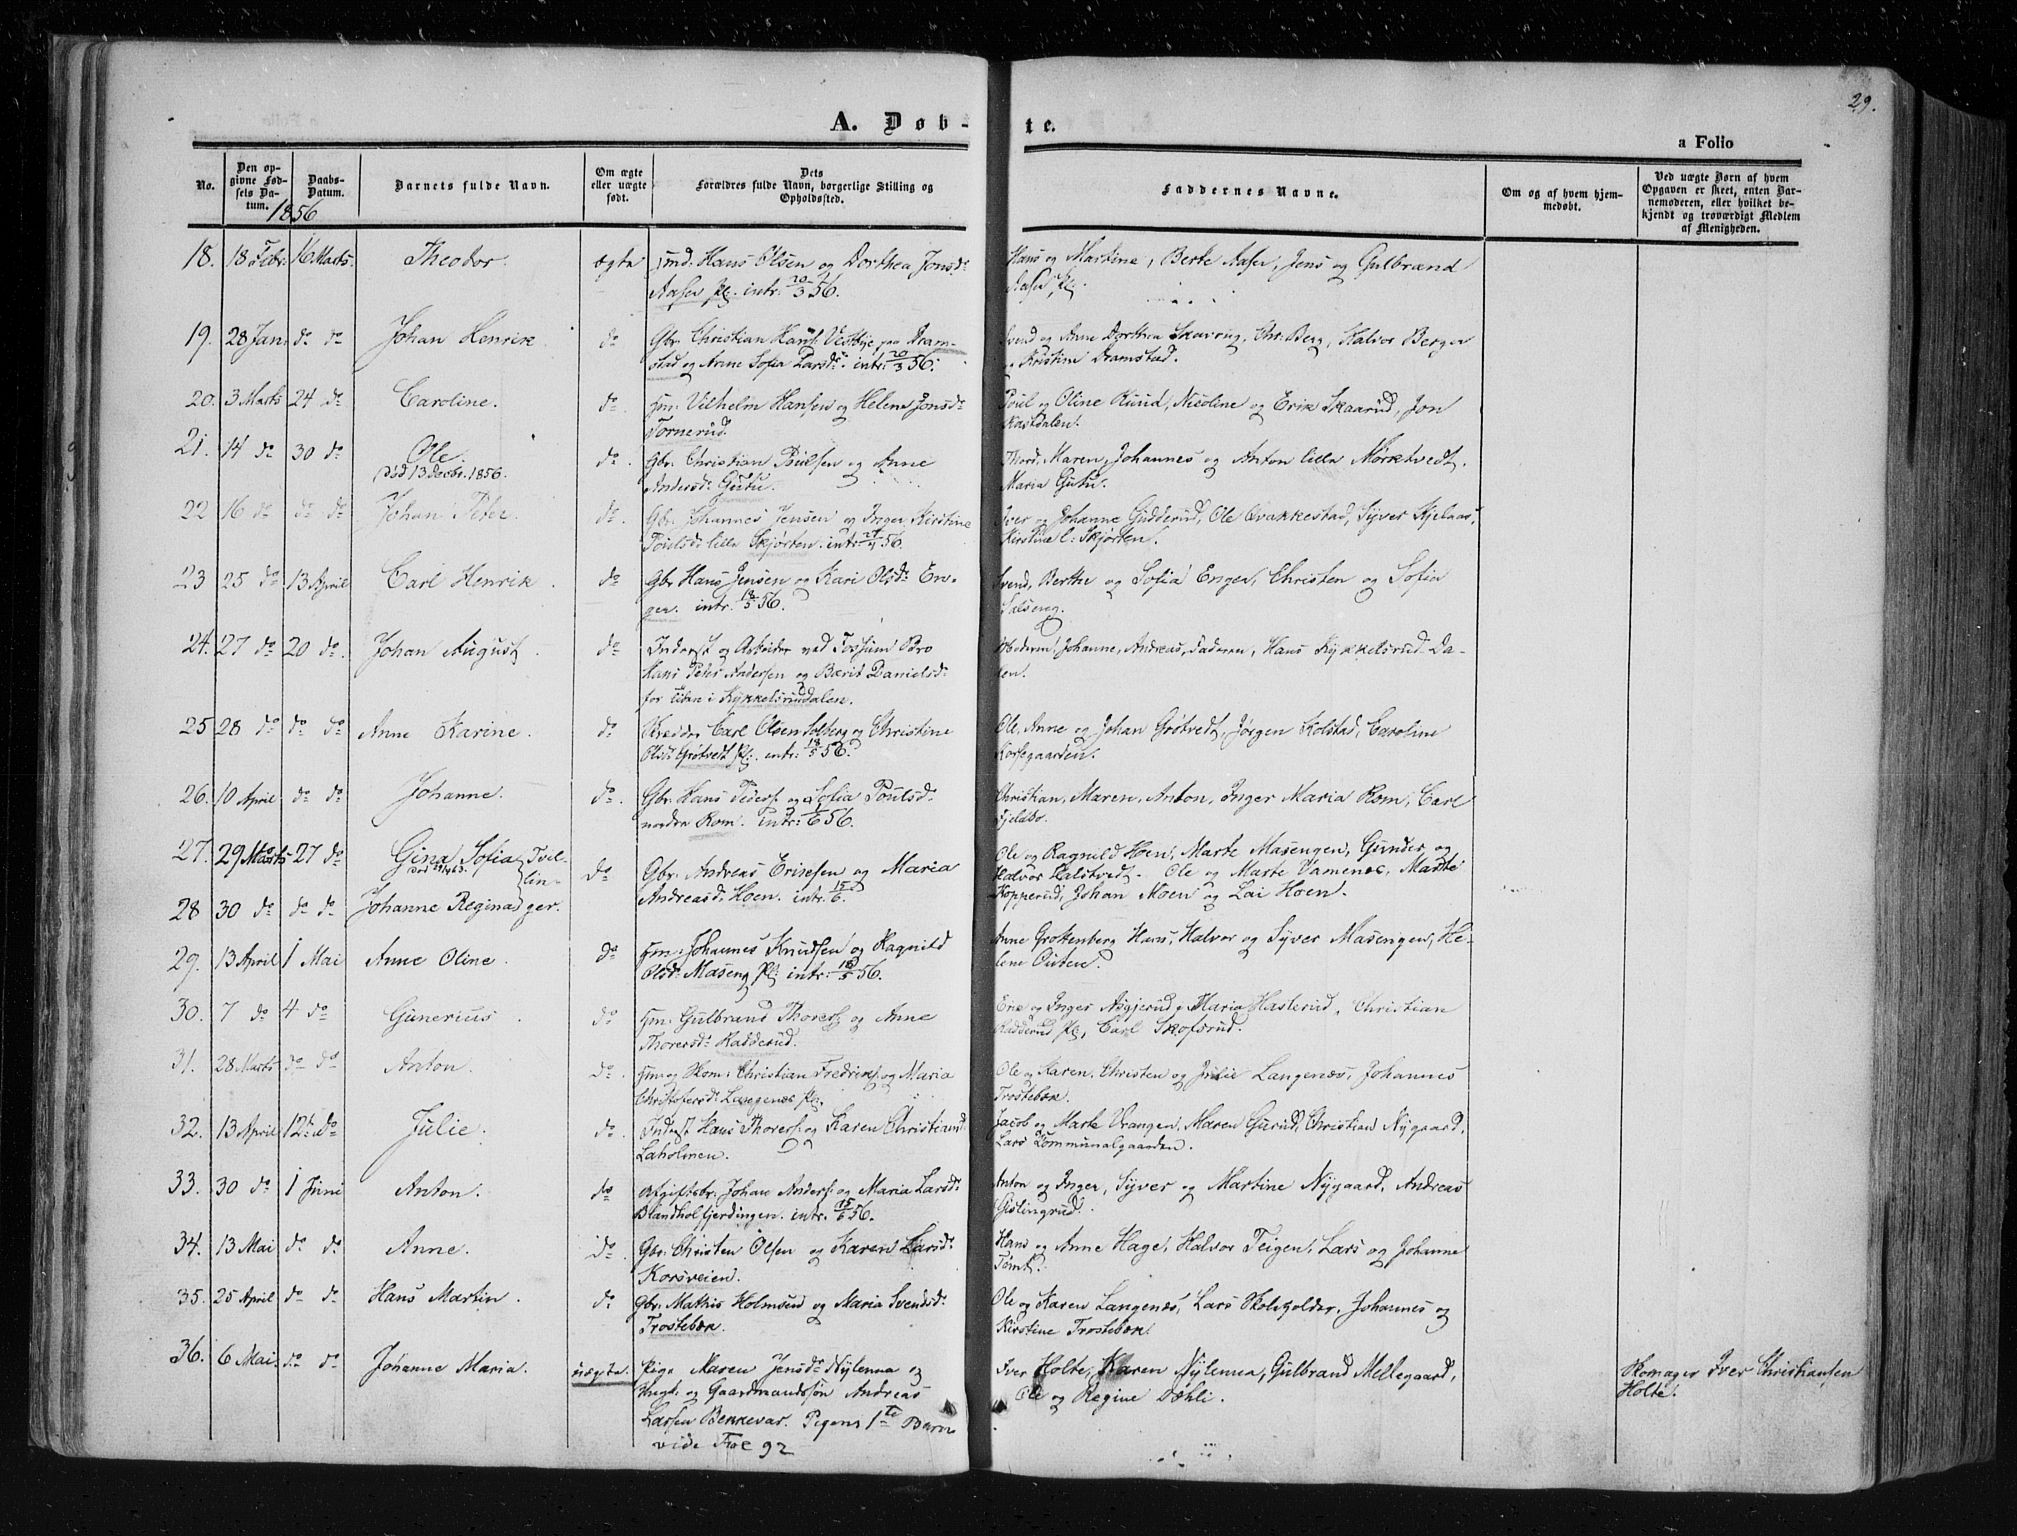 29.
A. Døb-
te.
a Folio
No.
Den op-
givne Fød-
sels Da-
tum.
Daabs-
Datum.
Barnets fulde Navn.
Om ægte
eller uægte
født.
Dets
Forældres fulde Navn, borgerlige Stilling og
Opholdssted.
Faddernes Navne.
Om og af hvem hjem-
medøbt.
Ved uægte Børn af hvem
Opgaven er skeet, enten Bar-
nemoderen, eller hvilket be-
kjendt og troværdigt Medlem
af Menigheden.
1856
18. 18 Febr. 16 Marts. Theodor. ægte Hans Olsen og Dorthea Jonsd:
Aaser Pl. intr: 20/3 56.
Hans og Martine, Berte Aaser, Jens og Gulbrand
Aaser Pl.
19. 28 Jan: do do Johan Henrik do Gbr: Christian Hans: Vestbye paa Dram-
stad og Anne Sofia Larsd: intr: 20/3 56.
Svend og Anne Dorthea Skavrug, Chr: Berg, Halvor Berger
og Kristine Dramstad.
20. 3 Marts 24 do Caroline. do Fm: Vilhelm Hansen og Helene Jonsd:
Tornerud.
Poul og Oline Ruud, Nicoline og Erik Skaarud, Jon
Kastdalen.
21. 14 do 30 do Ole. do Gbr: Christian Poulsen og Anne
død 13 Decbr. 1856.
Andersd: Gutu.
Thord, Maren, Johannes og Anton lille Mørktvedt,
Maria Gutu.
22 16 do do do Johan Peter do Gbr: Johannes Jensen og Inger Kirstine
Poulsd: lille Skjørten. intr: 56.
Iver og Johanne Gudderud, Ole Ovakkestad, Syver Kjelaas,
Kirstine l: Skjørten.
23 25 do 13 April Carl Henrik do Gbr Hans Jensen og Kari Olsd: En-
ger. intr: 18/5 56.
Svend, Berthe og Sofia Enger, Christen og Sofia
Salseng.
24. 27 do 20 do Johan August do Inderst og Arbeider ved Fossum Bro
Hans Peter Andersen og Berit Danielsd:
for tiden i Kykkelsruddalen.
Moderen, Johanne, Andreas, Faderen, Hans Kykkelsrud Da-
len.
25 28 do do do Anne Karine. do Skrædder Carl Olsen Solberg og Christine
Olsd: Grøtvedt Pl: intr: 18/5 56.
Ole, Anne og Johan Grøtvedt, Jørgen Kolstad, Caroline
Korsegaarden.
26. 10 April do do Johanne. do. Gbr: Hans Peders: og Sofia Poulsd:
nordre Rom. intr: 1/6 56.
Christian, Maren, Anton, Inger Maria Rom, Carl
Fjeldbo.
27. 29 Marts 27 do Gina Sofia Tvil-
lin-
28 30 do do do Johanne Regina ger.
do Gbr: Andreas Ericsen og Maria
Andreasd: Hoen. intr: 15/6.
Ole og Ragnild Hoen, Marte Masengen, Gunder og
Halvor Halstvedt. Ole og Marte Vamenes, Marte
Kopperud, Johan Moen og Lai Hoen.
29. 13 April 1 Mai Anne Oline. do Fm: Johannes Knudsen og Ragnild
Olsd: Maseng Pl: intr: 18/5 56.
Anne Grottenberg, Hans, Halvor og Syver Masengen, He-
lene Outen.
30. 7 do 4 do Gunerius. do Fm: Gulbrand Thoress: og Anne
Thoresd: Radderud.
Eric og Inger Nygjerud, Maria Hasterud, Christian
Radderud Pl, Carl Skofsrud.
31. 28 Marts do do Anton. do. Fm og Hom: Christian Fredriks: og Maria
Christofersd: Langenæs Pl.
Ole og Karen, Christen og Julie Langenæs, Johannes
Trostebæk.
32. 13 April 12te do Julie. do. Inderst Hans Thores: og Karen Christiansd:
Laholmen.
Jacob og Marte Vrangen, Maren Gurud, Christian Nygaard,
Lars Communalgaarden.
33. 30 do 1 Juni Anton. do Afgiftsbr: Johan Anders: og Maria Larsd:
Blandholfjerdingen. intr. 15/6 56.
Anton og Inger, Syver og Martine Nygaard, Andreas
Gislingrud.
34. 13 Mai do do Anne. do. Gbr: Christen Olsen og Karen Larsd:
Korsveien.
Hans og Anne Hage, Halvor Teigen, Lars og Johanne
Tømt.
35. 25 April do do Hans Martin. do Gbr: Mathis Holmsen og Maria Svendsd:
Trostebæk.
Ole og Karen Langenæs, Lars Skolsgolder, Johannes og
Kirstine Trostebæk.
36. 6 Mai do do Johanne Maria. uægte. Pige Maren Jensd: Nylenna og
Ungk: og Gaardmandssøn Andreas
Larsen Bekkevar. Pigens 1te Barn
vide Fol 92
Iver Holte, Karen Nylenna, Gulbrand Mellegaard,
Ole og Regine Dæhli.
Skomager Iver Christiansen
Holte.